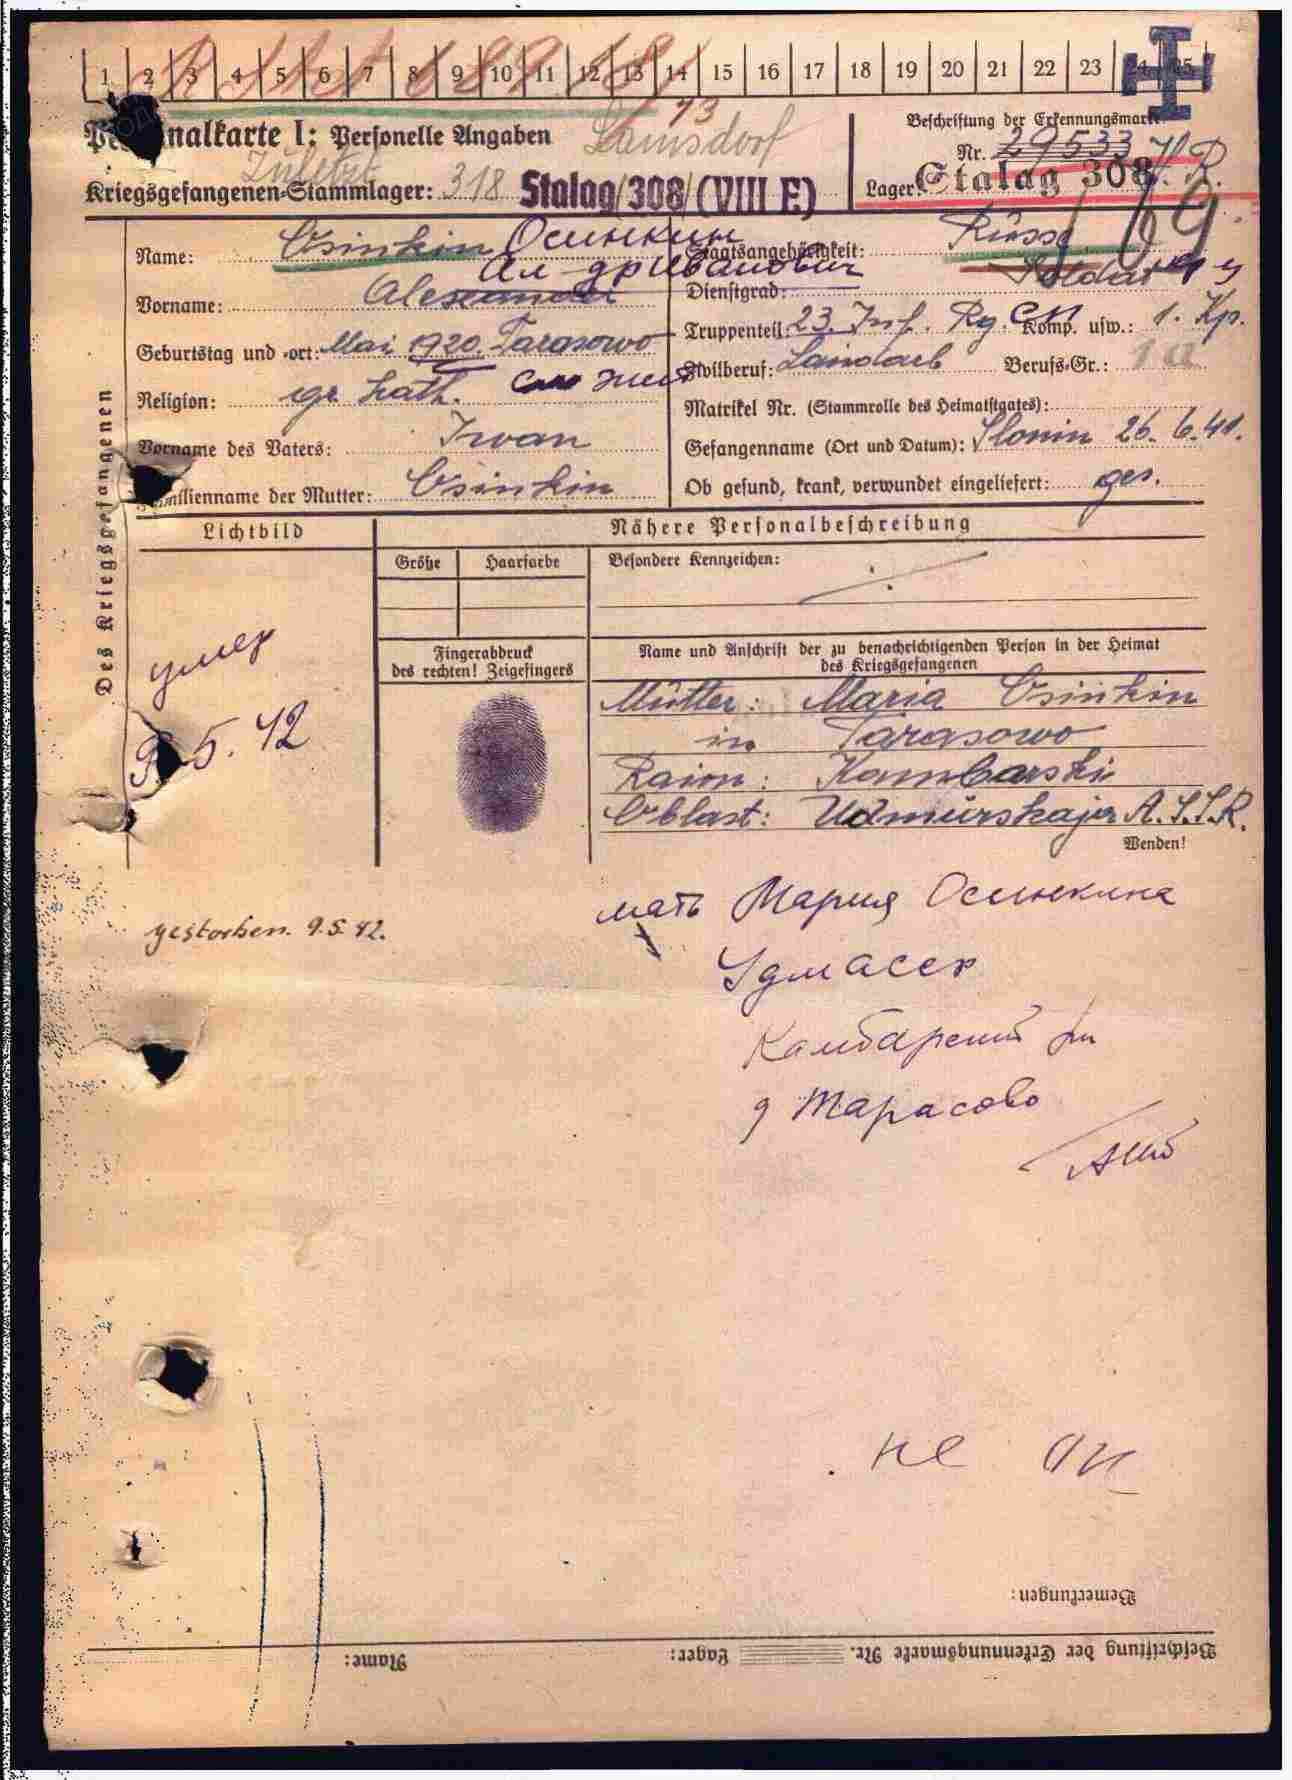 1 2 3 4 5 6 7 8 9 10 11 12 13 14 15 16 17 18 19 20 21 22 23 24 25
Personalkarte I: Personelle Angaben
Lamsdorf
Beschriftung der Erkennungsmarke
Nr. 29533 V.R.
Kriegsgefangenen-Stammlager: 318 Stalag 308 (VIII F)
Lager: Stalag 308
Name: Osinkin Осинкин
Staatsangehörigkeit: Russe
Ал-др Иванович
Vorname: Alexander
Dienstgrad: Soldat
Geburtstag und -ort: Mai 1920 Tarasowo
Truppenteil: 23. Inf. Rg. СП Komp. usw.: 1. Kp.
Zivilberuf: Landarb Berufs-Gr.: 1a
Religion: gr. kath.
Matrikel Nr. (Stammrolle des Heimatstaates):
Vorname des Vaters: Iwan
Gefangennahme (Ort und Datum): Slonin 26.6.41.
Familienname der Mutter: Osinkin
Ob gesund, krank, verwundet eingeliefert: ges.
Des Kriegsgefangenen
Lichtbild
Nähere Personalbeschreibung
Größe Haarfarbe
Besondere Kennzeichen:
Fingerabdruck
des rechten! Zeigefingers
Name und Anschrift der zu benachrichtigenden Person in der Heimat
des Kriegsgefangenen
умер
9.5.42
Mutter: Maria Osinkin
in Tarasowo
Raion: Kambarski
Oblast: Udmurskaja A.S.S.R.
Wenden!
мать Мария Осинкина
gestorben. 9.5.42.
Удмасср
Камбарский рн
д Тарасово
не оп
Bemerkungen:
Beschriftung der Erkennungsmarke Nr. Lager: Name: